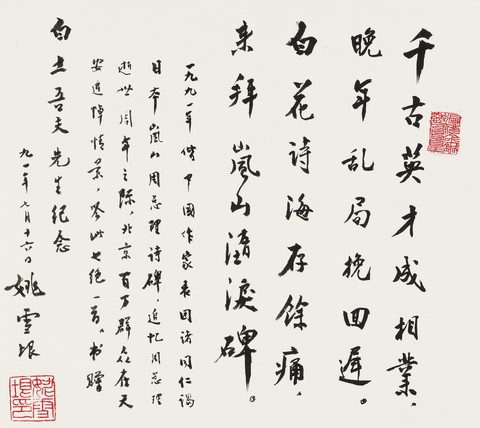 千古英才成相業，
晚年乱局挽回遲。
白花詩海存餘痛，
来拜嵐山淚碑。
一九九一年偕中國作家表团諸同仁謁
日本嵐山周总理詩碑，追忆周总理
逝世周年之际，北京百万群众在天
安追悼情景，此七绝一首。书赠
白土吾夫先生纪念
九一年七月十六日
姚雪垠
姚雪垠印